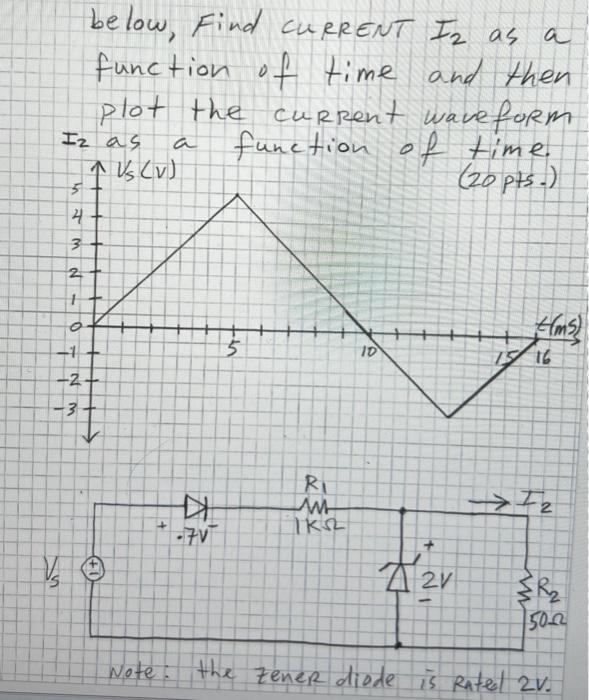 below, Find CURRENT I2 as a
function of time and then
plot the current waveform
I2 as a function of time.
(20 pts.)
Vs (V)
5
4
3
2
1
0
-1
-2
-3
5
10
15
16
t(ms)
R1
1KΩ
→ I2
+ .7V -
Vs
+
2V
-
R2
50Ω
Note: the zener diode is Rated 2V.